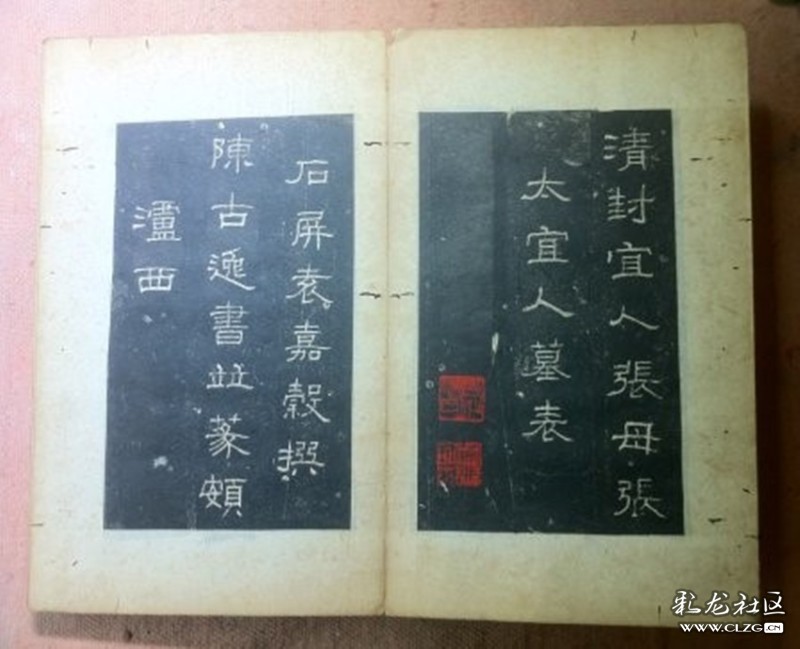 清封宜人張母張
太宜人墓表
石屏袁嘉穀撰
陳古逸書並篆額
瀘西
彩龙社区
WWW.CLZG.CN